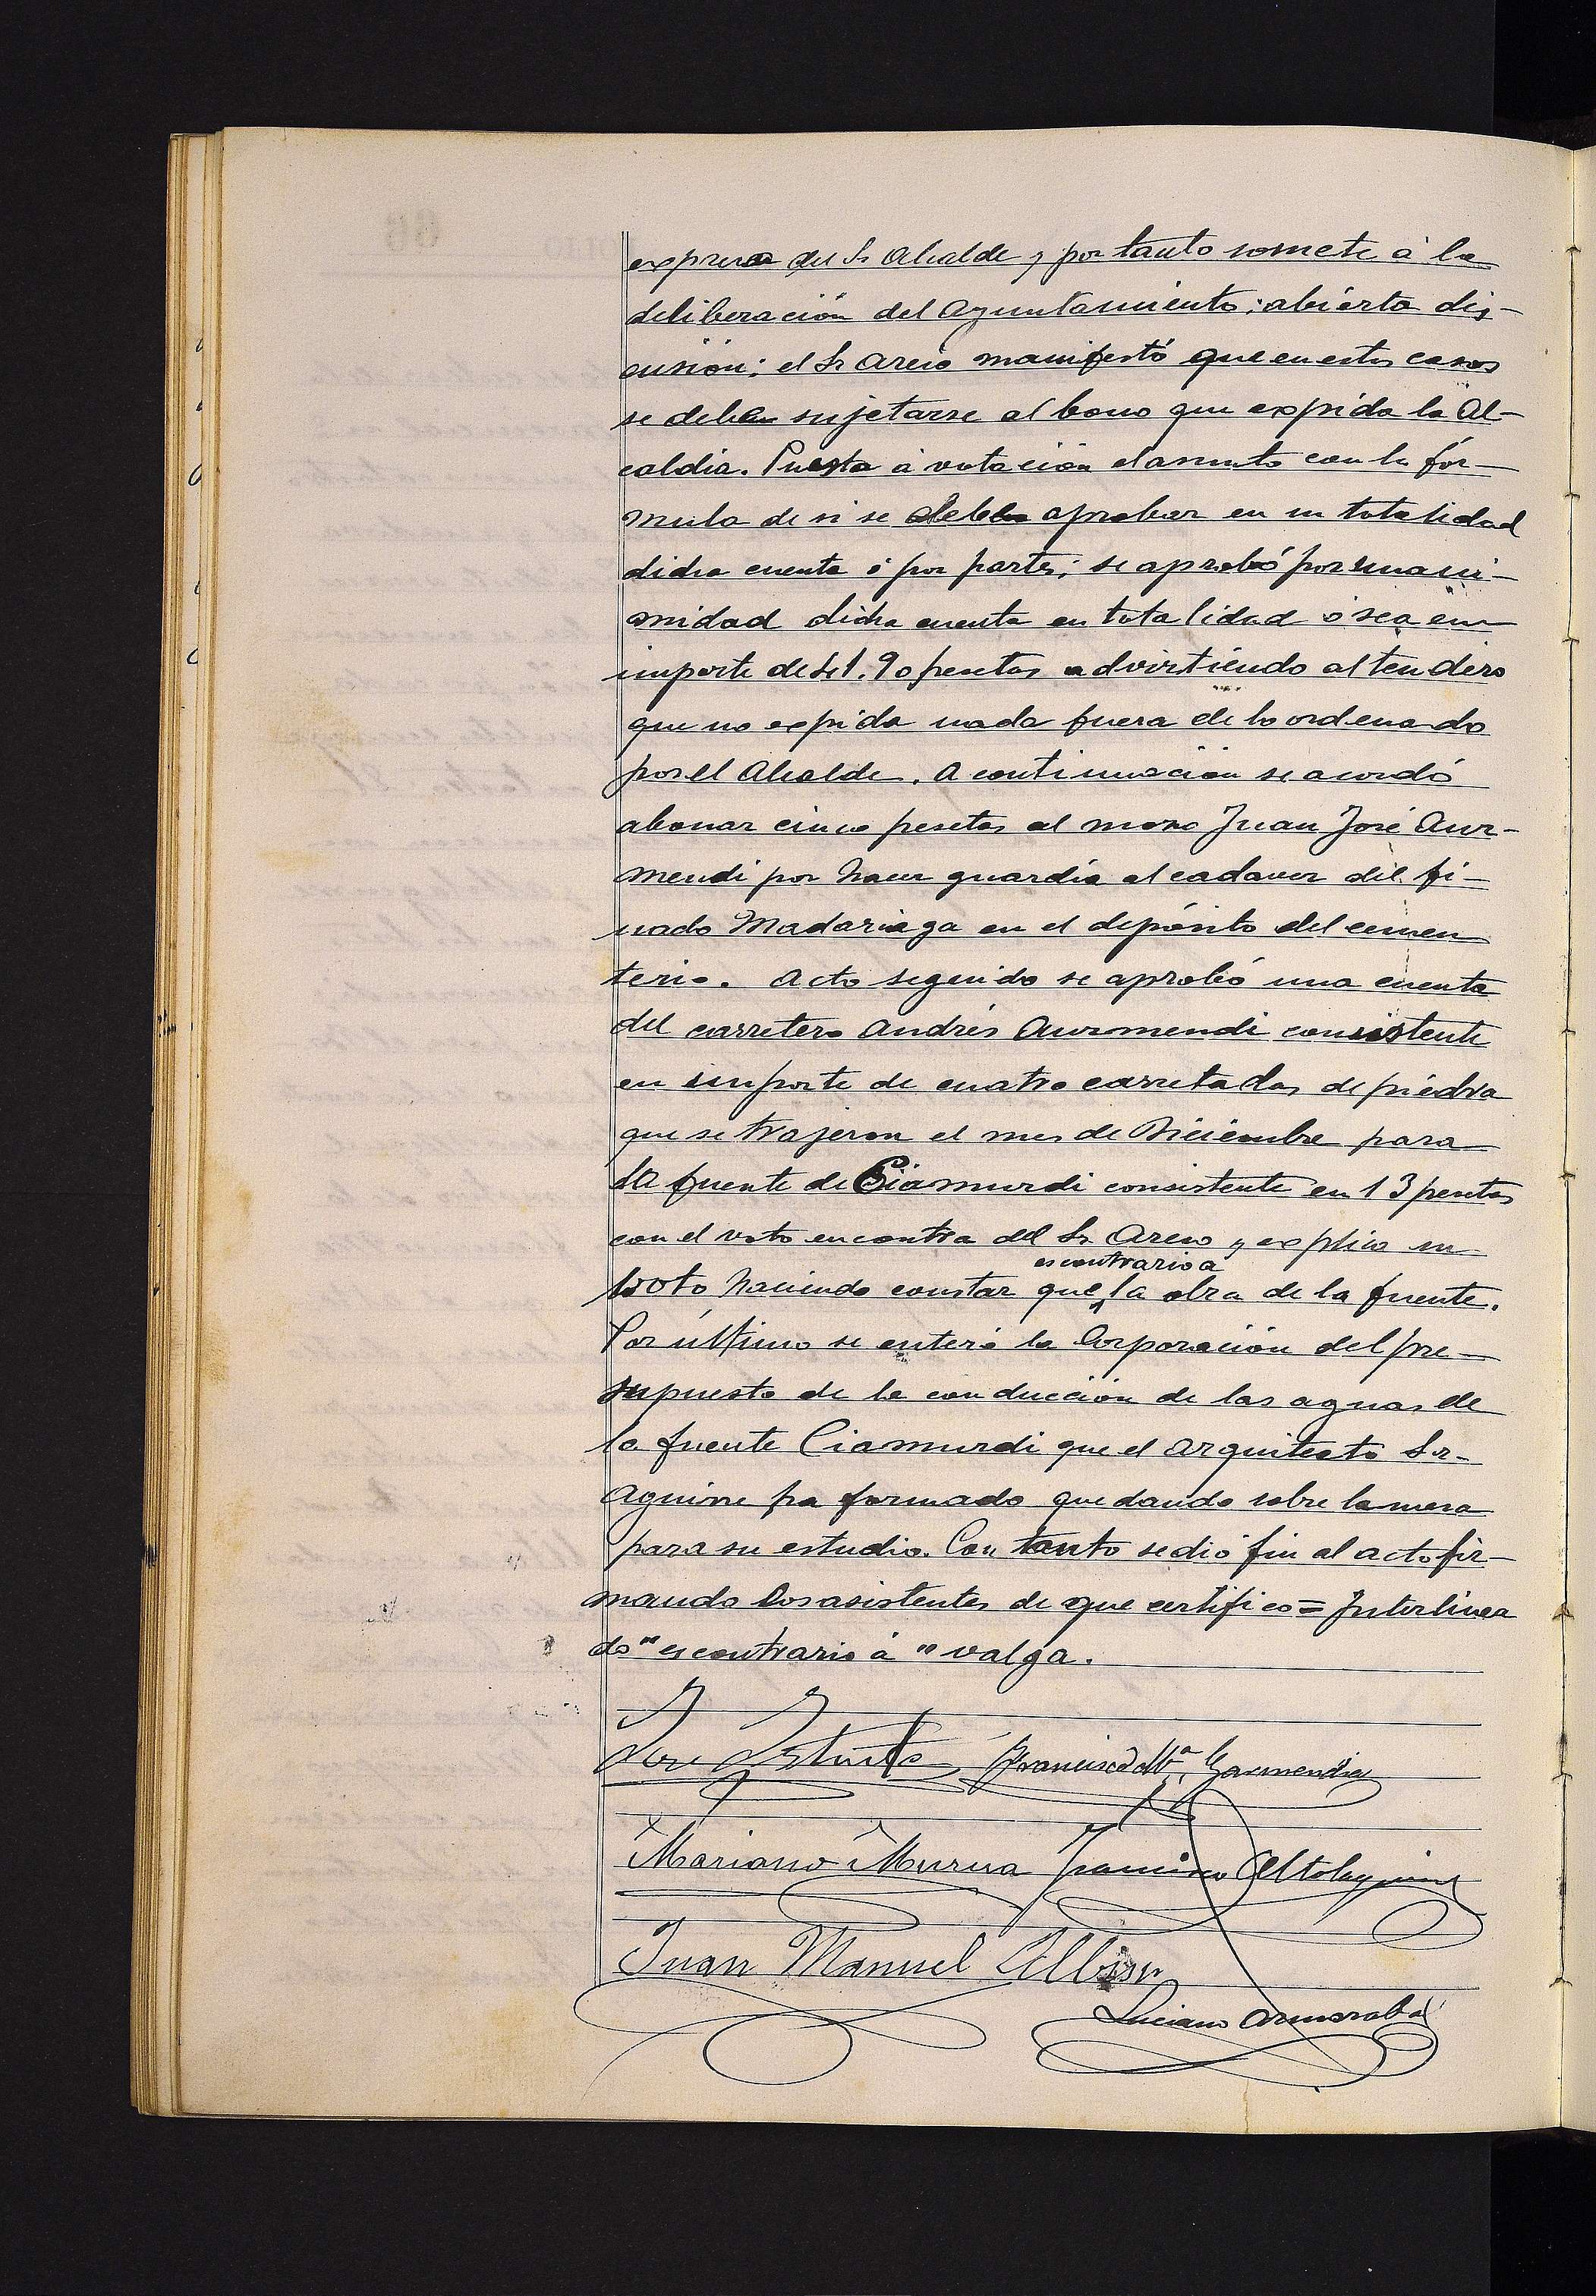 expresa del Sr Alcalde y por tanto somete á la
deliberación del Ayuntamiento; abierta dis-
cusión; el Sr Areio manifestó que en estos casos
se deben sujetarse al bono que expida la Al-
caldia. Puesta á votación el asunto con la fór-
mula de si se debe aprobar en su totalidad
dicha cuenta ó por partes; se aprobó por unani-
midad dicha cuenta en totalidad ó sea en
importe de 41.90 pesetas advirtiendo al tendero
que no expida nada fuera de lo ordenado
por el Alcalde. A continuación se acordó
abonar cinco pesetas al mozo Juan José Aur-
mendi por hacer guardia al cadaver del fi-
nado Madariaga en el depósito del cemen
terio. Acto seguido se aprobó una cuenta
del carretero Andrés Aurmendi consistente
en importe de cuatro carretadas de piedra
que se trajeron el mes de Diciembre para
la fuente de Ciamurdi consistente en 13 pesetas
con el voto en contra del Sr. Areio y explico su
es contrario a
voto haciendo constar que la obra de la fuente.
Por último se enteró la Corporación del pre-
supuesto de la conducción de las aguas de
la fuente Ciamurdi que el arquitecto Sr-
Aguirre ha formado quedando sobre la mesa
para su estudio. Con tanto se dió fin al acto fir-
mando los asistentes de que certifico = Interlinea
do "es contrario á" valga.
José Francisco Mª Garmendia
Mariano Murua Francisco Altolaguirre
Juan Manuel Albisu
Luciano Armorabal